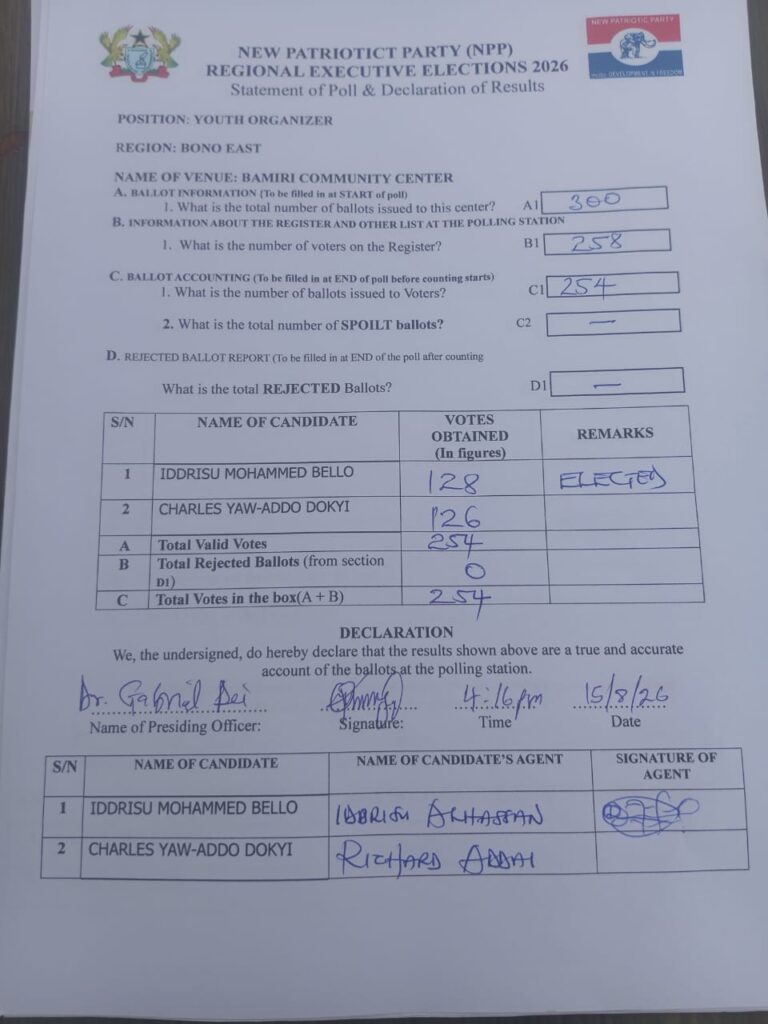 NEW PATRIOTIC PARTY
DEVELOPMENT IN FREEDOM
NEW PATRIOTICT PARTY (NPP)
REGIONAL EXECUTIVE ELECTIONS 2026
Statement of Poll & Declaration of Results
POSITION: YOUTH ORGANIZER
REGION: BONO EAST
NAME OF VENUE: BAMIRI COMMUNITY CENTER
A. BALLOT INFORMATION (To be filled in at START of poll)
1. What is the total number of ballots issued to this center? A1 300
B. INFORMATION ABOUT THE REGISTER AND OTHER LIST AT THE POLLING STATION
1. What is the number of voters on the Register? B1 258
C. BALLOT ACCOUNTING (To be filled in at END of poll before counting starts)
1. What is the number of ballots issued to Voters? C1 254
2. What is the total number of SPOILT ballots? C2 —
D. REJECTED BALLOT REPORT (To be filled in at END of the poll after counting
What is the total REJECTED Ballots? D1 —
S/N NAME OF CANDIDATE VOTES OBTAINED (In figures) REMARKS
1 IDDRISU MOHAMMED BELLO 128 ELECTED
2 CHARLES YAW-ADDO DOKYI 126
A Total Valid Votes 254
B Total Rejected Ballots (from section D1) 0
C Total Votes in the box(A + B) 254
DECLARATION
We, the undersigned, do hereby declare that the results shown above are a true and accurate
account of the ballots at the polling station.
Dr. Gabriel 4:16pm 15/8/26
Name of Presiding Officer: Signature: Time Date
S/N NAME OF CANDIDATE NAME OF CANDIDATE'S AGENT SIGNATURE OF AGENT
1 IDDRISU MOHAMMED BELLO IDDRISU ALHASSAN
2 CHARLES YAW-ADDO DOKYI RICHARD ADDAI